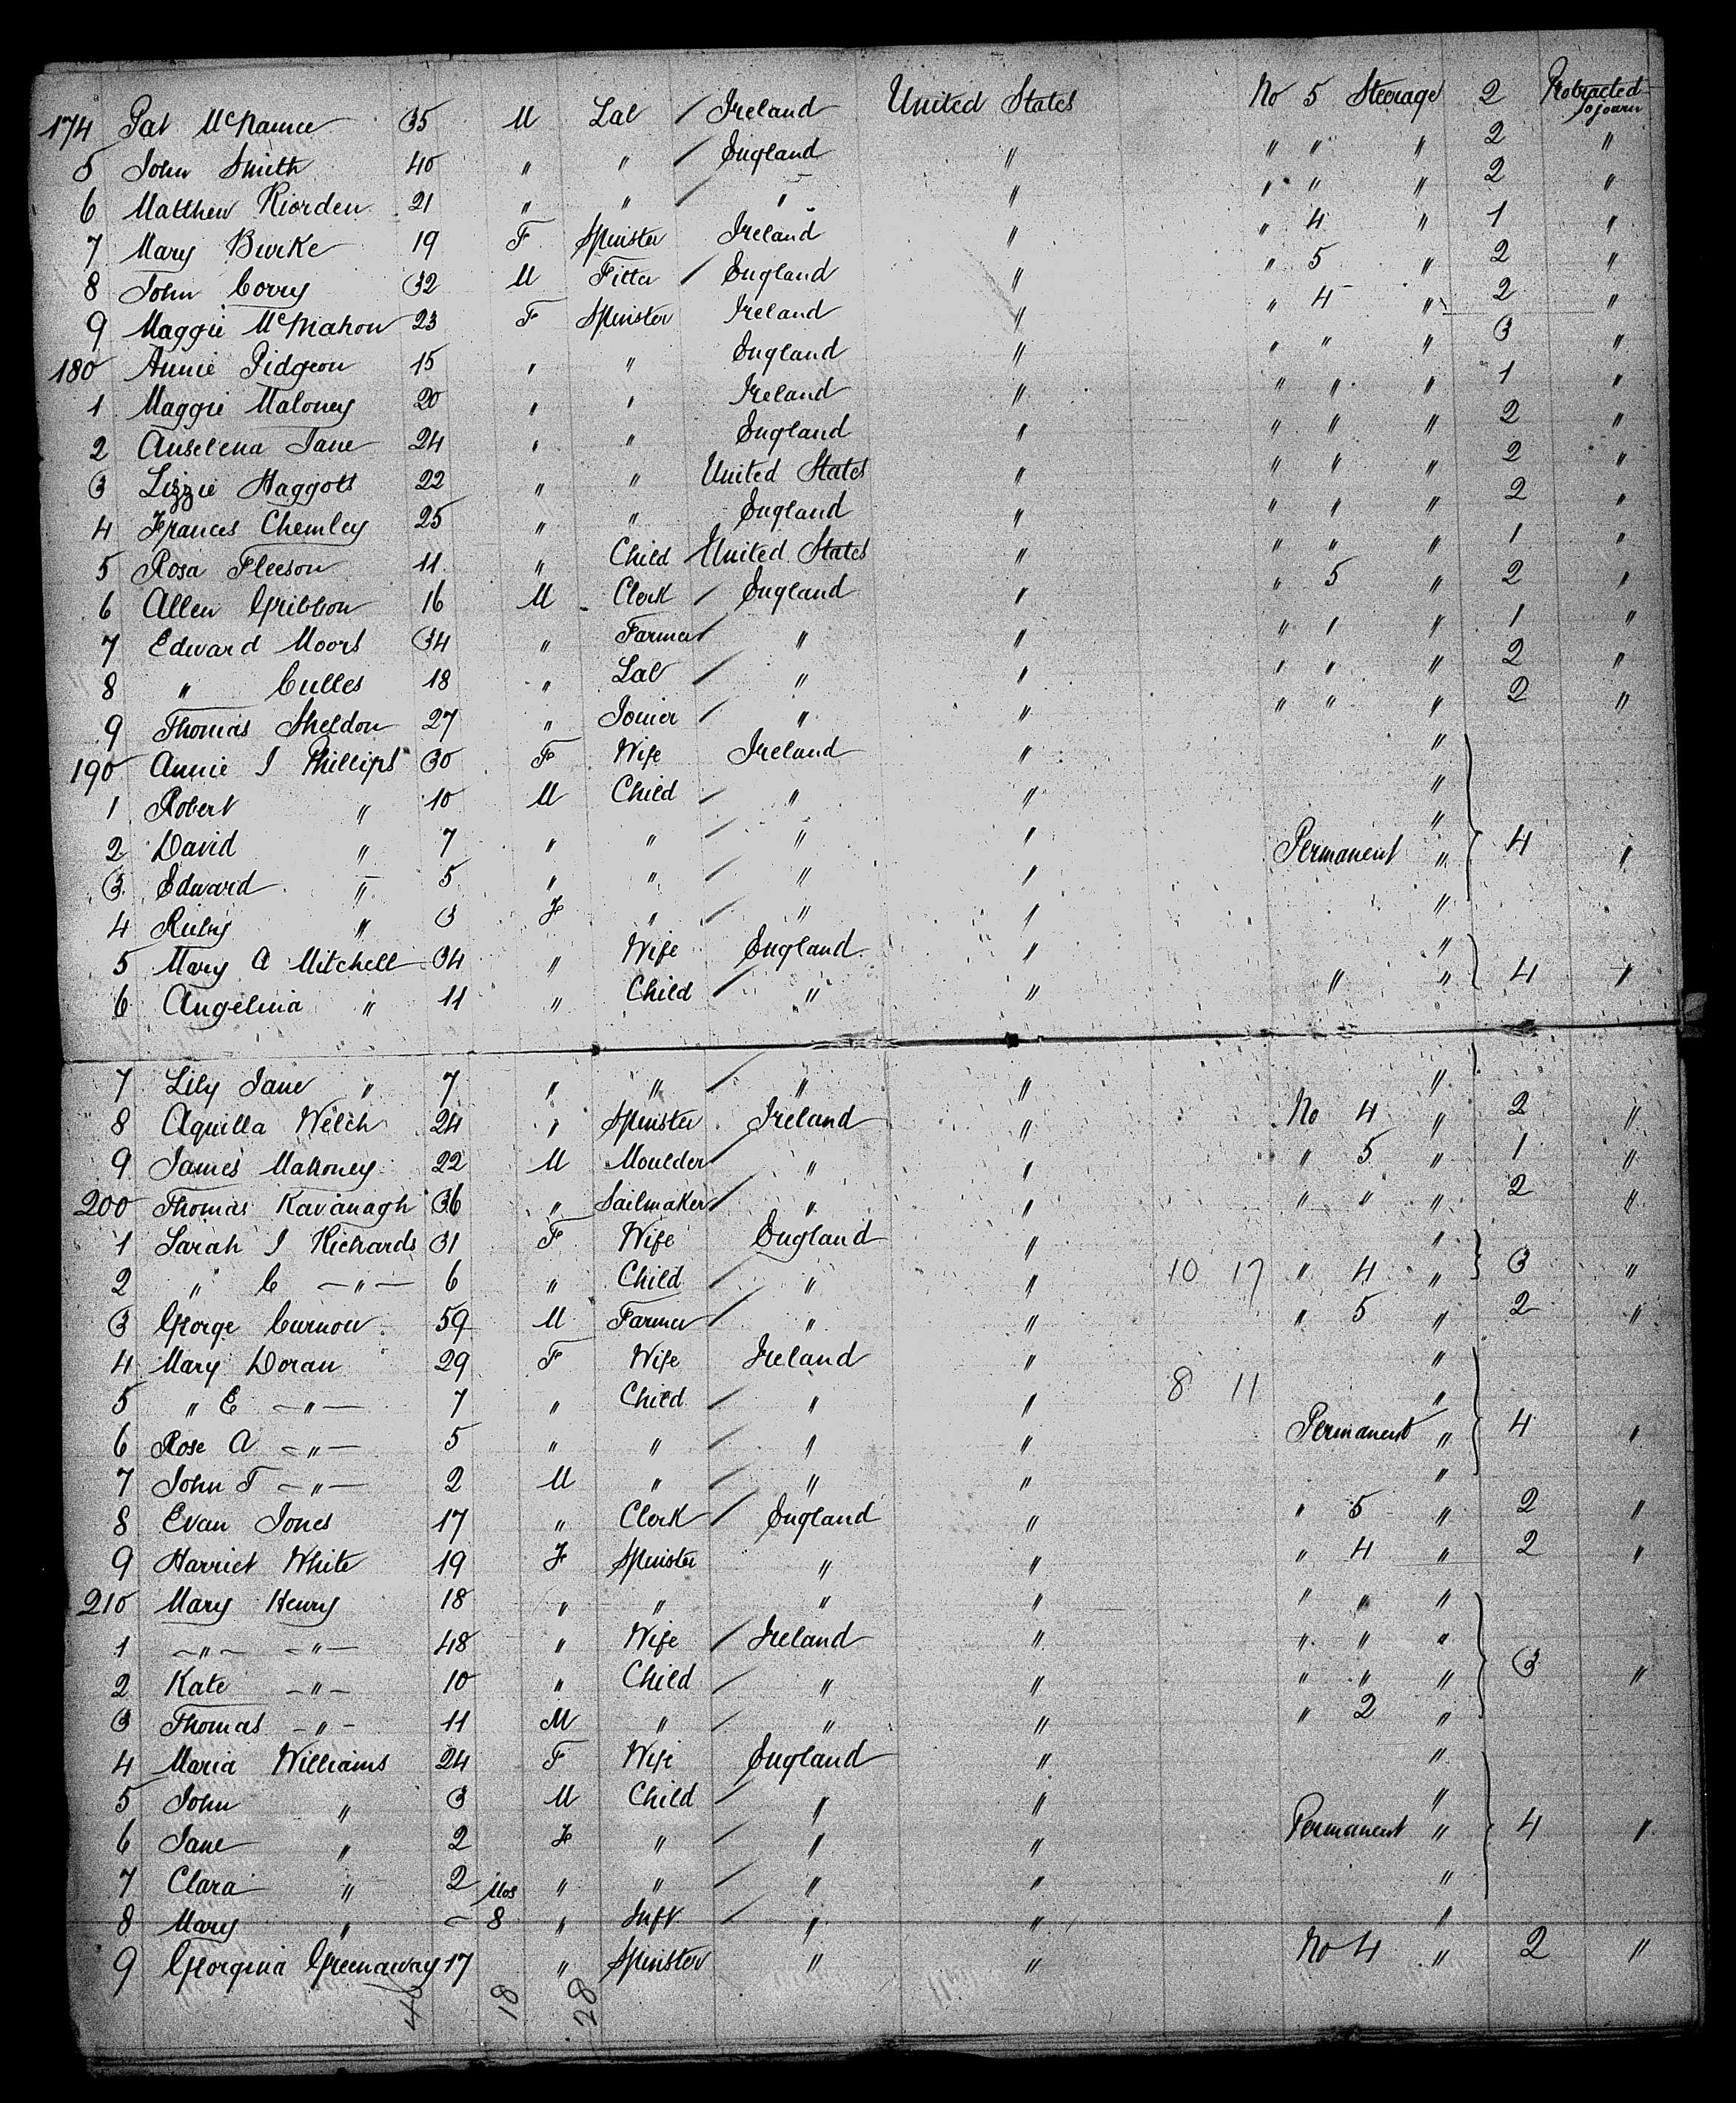 174 Pat McNamee 35 M Lab / Ireland United States No 5 Steerage 2 Protracted sojourn
5 John Smith 40 " " / England " " " " 2 "
6 Matthew Riorden 21 " " / " " " " " 2 "
7 Mary Burke 19 F Spinster Ireland " " 4 " 1 "
8 John Corry 32 M Fitter / England " " 5 " 2 "
9 Maggie McMahon 23 F Spinster Ireland " " 4 " 2 "
180 Annie Pidgeon 15 " " England " " " " 3 "
1 Maggie Maloney 20 " " Ireland " " " " 1 "
2 Anselena Jane 24 " " England " " " " 2 "
3 Lizzie Haggott 22 " " United States " " " " 2 "
4 Frances Chemley 25 " " England " " " " 2 "
5 Rosa Fleeson 11 " Child / United States " " " " 1 "
6 Allen Gribbon 16 M Clerk / England " " 5 " 2 "
7 Edward Moors 34 " Farmer / " " " " " 1 "
8 " Culles 18 " Lab / " " " " " 2 "
9 Thomas Sheldon 27 " Joiner / " " " " " 2 "
190 Annie J Phillips 30 F Wife Ireland " "
1 Robert " 10 M Child / " " "
2 David " 7 " " / " " "
3 Edward " 5 " " / " " Permanent " 4 "
4 Ruby " 3 F " / " " "
5 Mary A Mitchell 34 " Wife England " "
6 Angelina " 11 " Child / " " " " 4 "
7 Lily Jane " 7 " " / " " "
8 Aquilla Welch 24 " Spinster Ireland " No 4 " 2 "
9 James Mahoney 22 M Moulder / " " " 5 " 1 "
200 Thomas Kavanagh 36 " Sailmaker / " " " " " 2 "
1 Sarah J Richards 31 F Wife England " "
2 " C — " — 6 " Child / " " 10 17 " 4 " 3 "
3 George Curnow 59 M Farmer / " " " 5 " 2 "
4 Mary Doran 29 F Wife Ireland " "
5 " E — " — 7 " Child / " " 8 11 "
6 Rose A — " — 5 " " / " " Permanent " 4 "
7 John T — " — 2 M " / " " "
8 Evan Jones 17 " Clerk / England " " 5 " 2 "
9 Harriet White 19 F Spinster " " " 4 " 2 "
210 Mary Henry 18 " " " " " " "
1 — " — — " — 48 " Wife / Ireland " " " "
2 Kate — " — 10 " Child / " " " " " 3 "
3 Thomas — " — 11 M " / " " " 2 "
4 Maria Williams 24 F Wife England " "
5 John " 3 M Child / " " "
6 Jane " 2 F " / " " Permanent " 4 "
7 Clara " 2 " " / " " "
8 Mary " — Mos 8 " Inft / " " "
9 Georgina Greenaway 17 " Spinster " " No 4 " 2 "
18 28